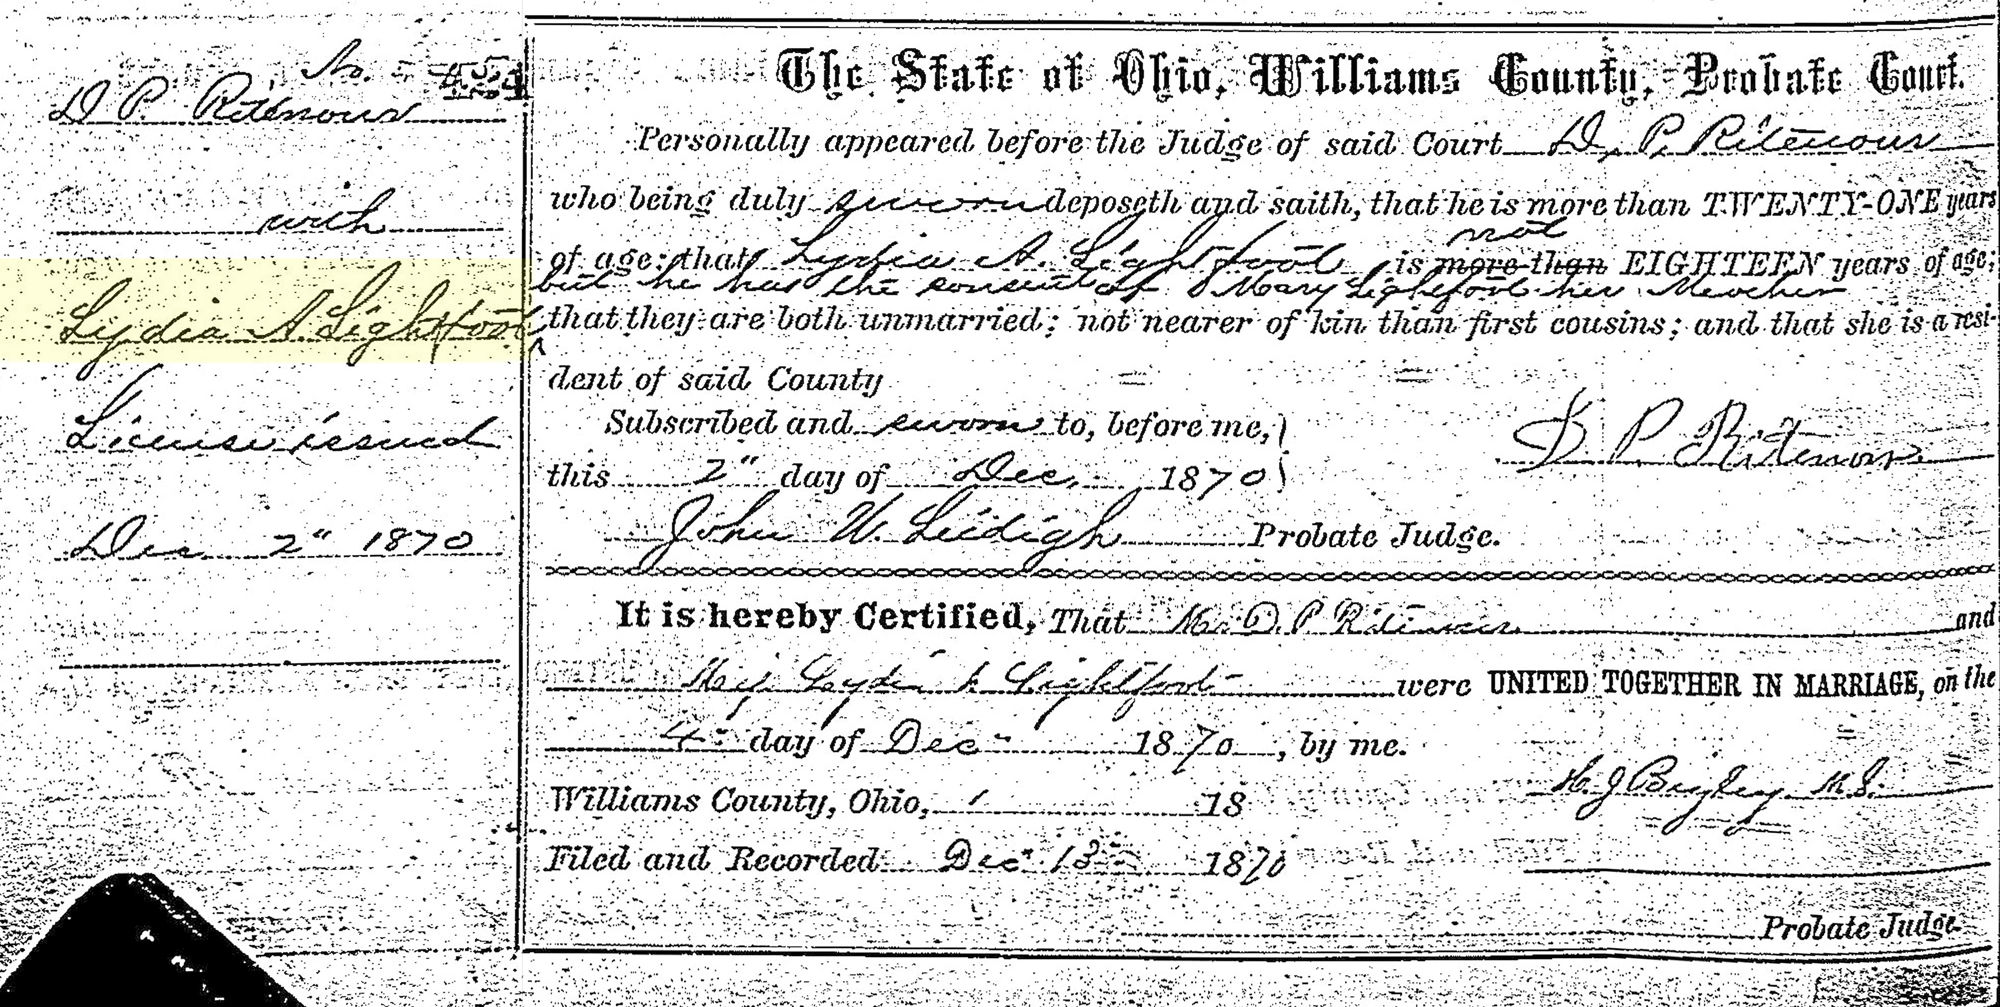 No. 454
D P. Ritenour
with
Lydia A. Lightfoot
License issued
Dec 2" 1870
The State of Ohio, Williams County, Probate Court.
Personally appeared before the Judge of said Court D, P, Ritenour
who being duly sworn deposeth and saith, that he is more than TWENTY-ONE years
not
of age: that Lydia A. Lightfoot is more than EIGHTEEN years of age;
but he has the consent of Mary Lightfoot her Mother
that they are both unmarried; not nearer of kin than first cousins; and that she is a resi-
dent of said County
Subscribed and sworn to, before me,
this 2" day of Dec, 1870
D P Ritenour
John W. Leidigh Probate Judge.
It is hereby Certified, That Mr. D. P. Ritenour and
Lydia A Lightfoot were UNITED TOGETHER IN MARRIAGE, on the
4" day of Dec 1870, by me.
Williams County, Ohio, 18
H. J.
Filed and Recorded Dec 13 1870
Probate Judge